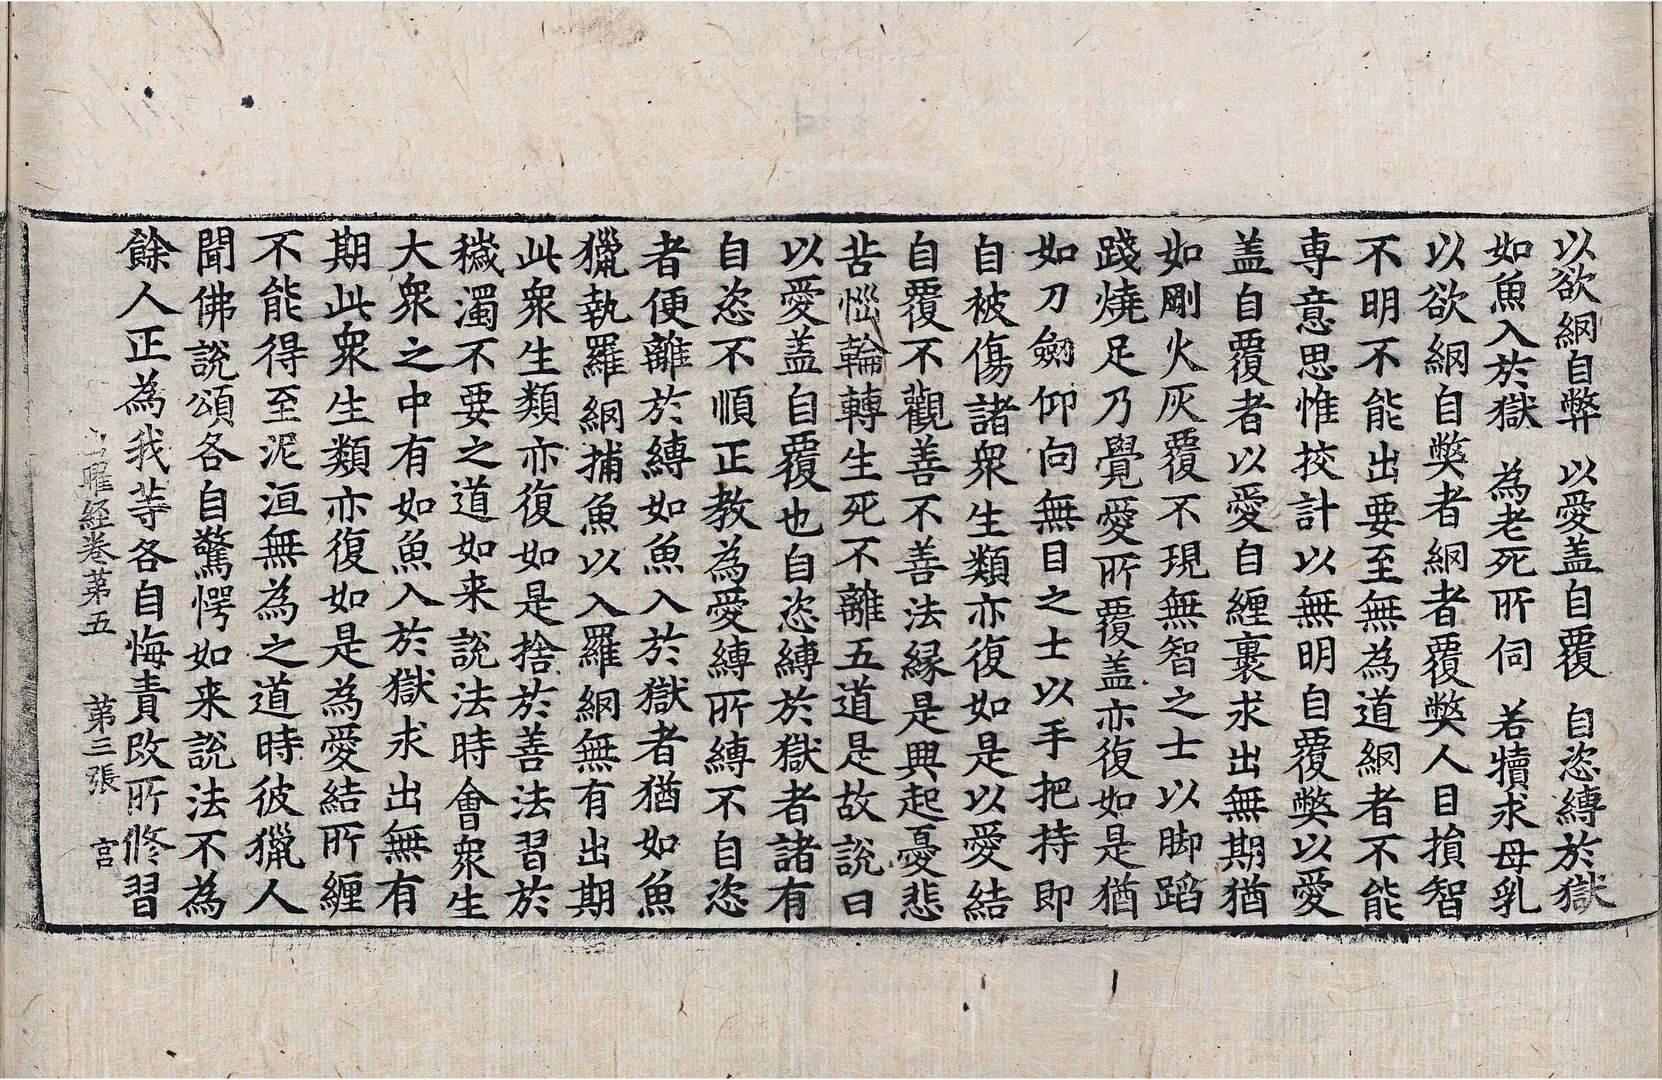 以欲網自弊　以愛盖自覆　自恣縛於獄
如魚入於獄　為老死所伺　若犢求母乳
以欲網自弊者網者覆弊人目損智
不明不能出要至無為道網者不能
專意思惟挍計以無明自覆弊以愛
盖自覆者以愛自纒裹求出無期猶
如剛火灰覆不現無智之士以脚蹈
踐燒足乃覺愛所覆盖亦復如是猶
如刀劒仰向無目之士以手把持即
自被傷諸衆生類亦復如是以愛結
自覆不觀善不善法縁是興起憂悲
苦惱輪轉生死不離五道是故說曰
以愛盖自覆也自恣縛於獄者諸有
自恣不順正教為愛縛所縛不自恣
者便離於縛如魚入於獄者猶如魚
獵執羅網捕魚以入羅網無有出期
此衆生類亦復如是捨於善法習於
穢濁不要之道如来說法時會衆生
大衆之中有如魚入於獄求出無有
期此衆生類亦復如是為愛結所纒
不能得至泥洹無為之道時彼獵人
聞佛說頌各自驚愕如来說法不為
餘人正為我等各自悔責改所修習
曜經卷第五　第三張　宫